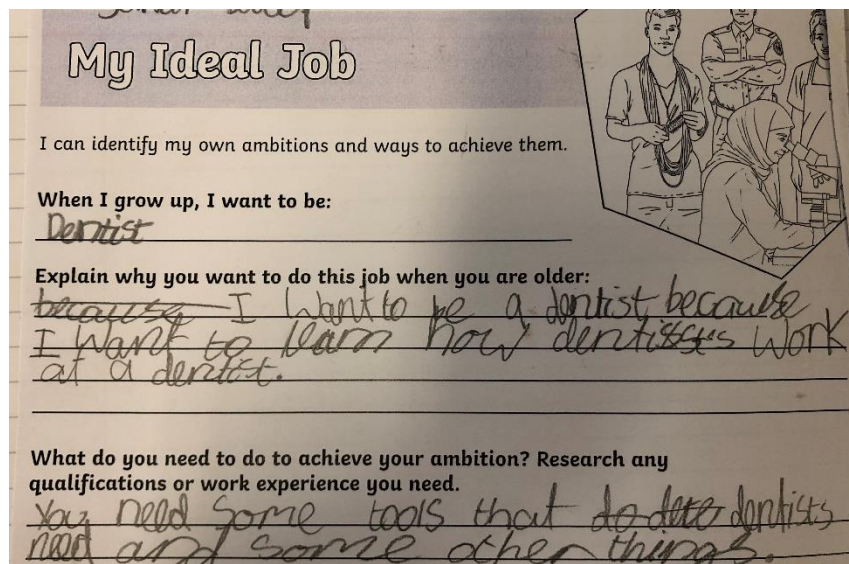 My Ideal Job
I can identify my own ambitions and ways to achieve them.
When I grow up, I want to be:
Dentist
Explain why you want to do this job when you are older:
because I want to be a dentist because
I want to learn how dentists work
at a dentist.
What do you need to do to achieve your ambition? Research any
qualifications or work experience you need.
You need some tools that do dentists
need and some other things.